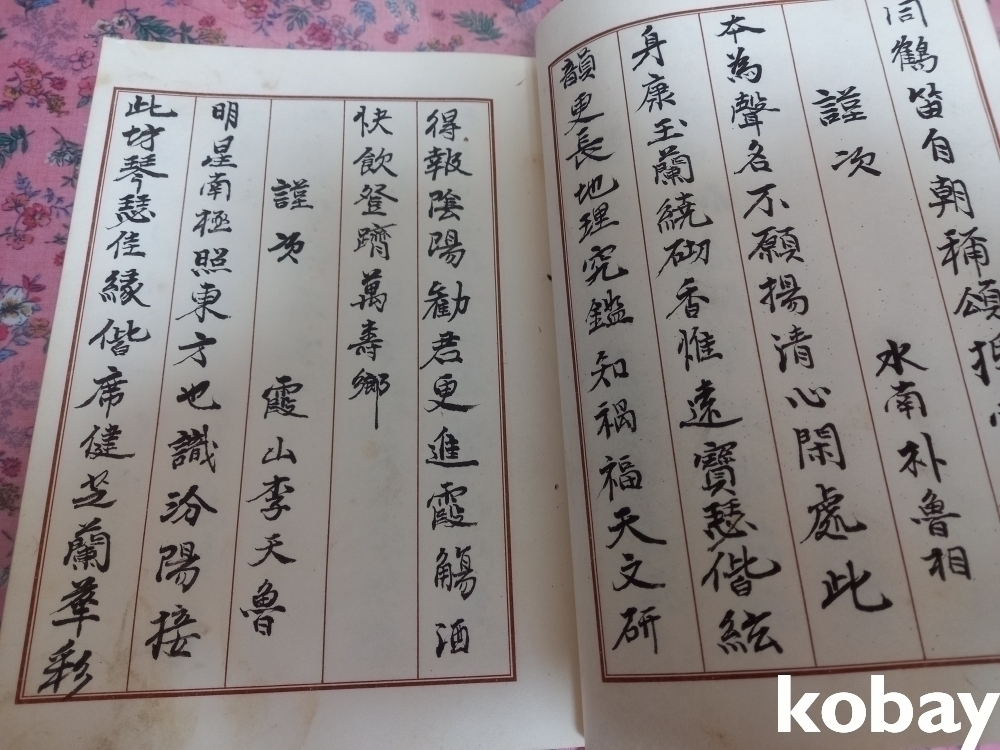 同鶴笛自朝稱頌
謹次
水南朴魯相
本為聲名不願揚清心閑處此
身康玉蘭繞砌香惟遠寶瑟偕絃
韻更長地理究鑑知禍福天文研
得報陰陽勸君更進霞觴酒
快飮登躋萬壽鄉
謹次
霞山李天魯
明星南極照東方也識汾陽接
此坊琴瑟佳緣偕席健芝蘭華彩
kobay